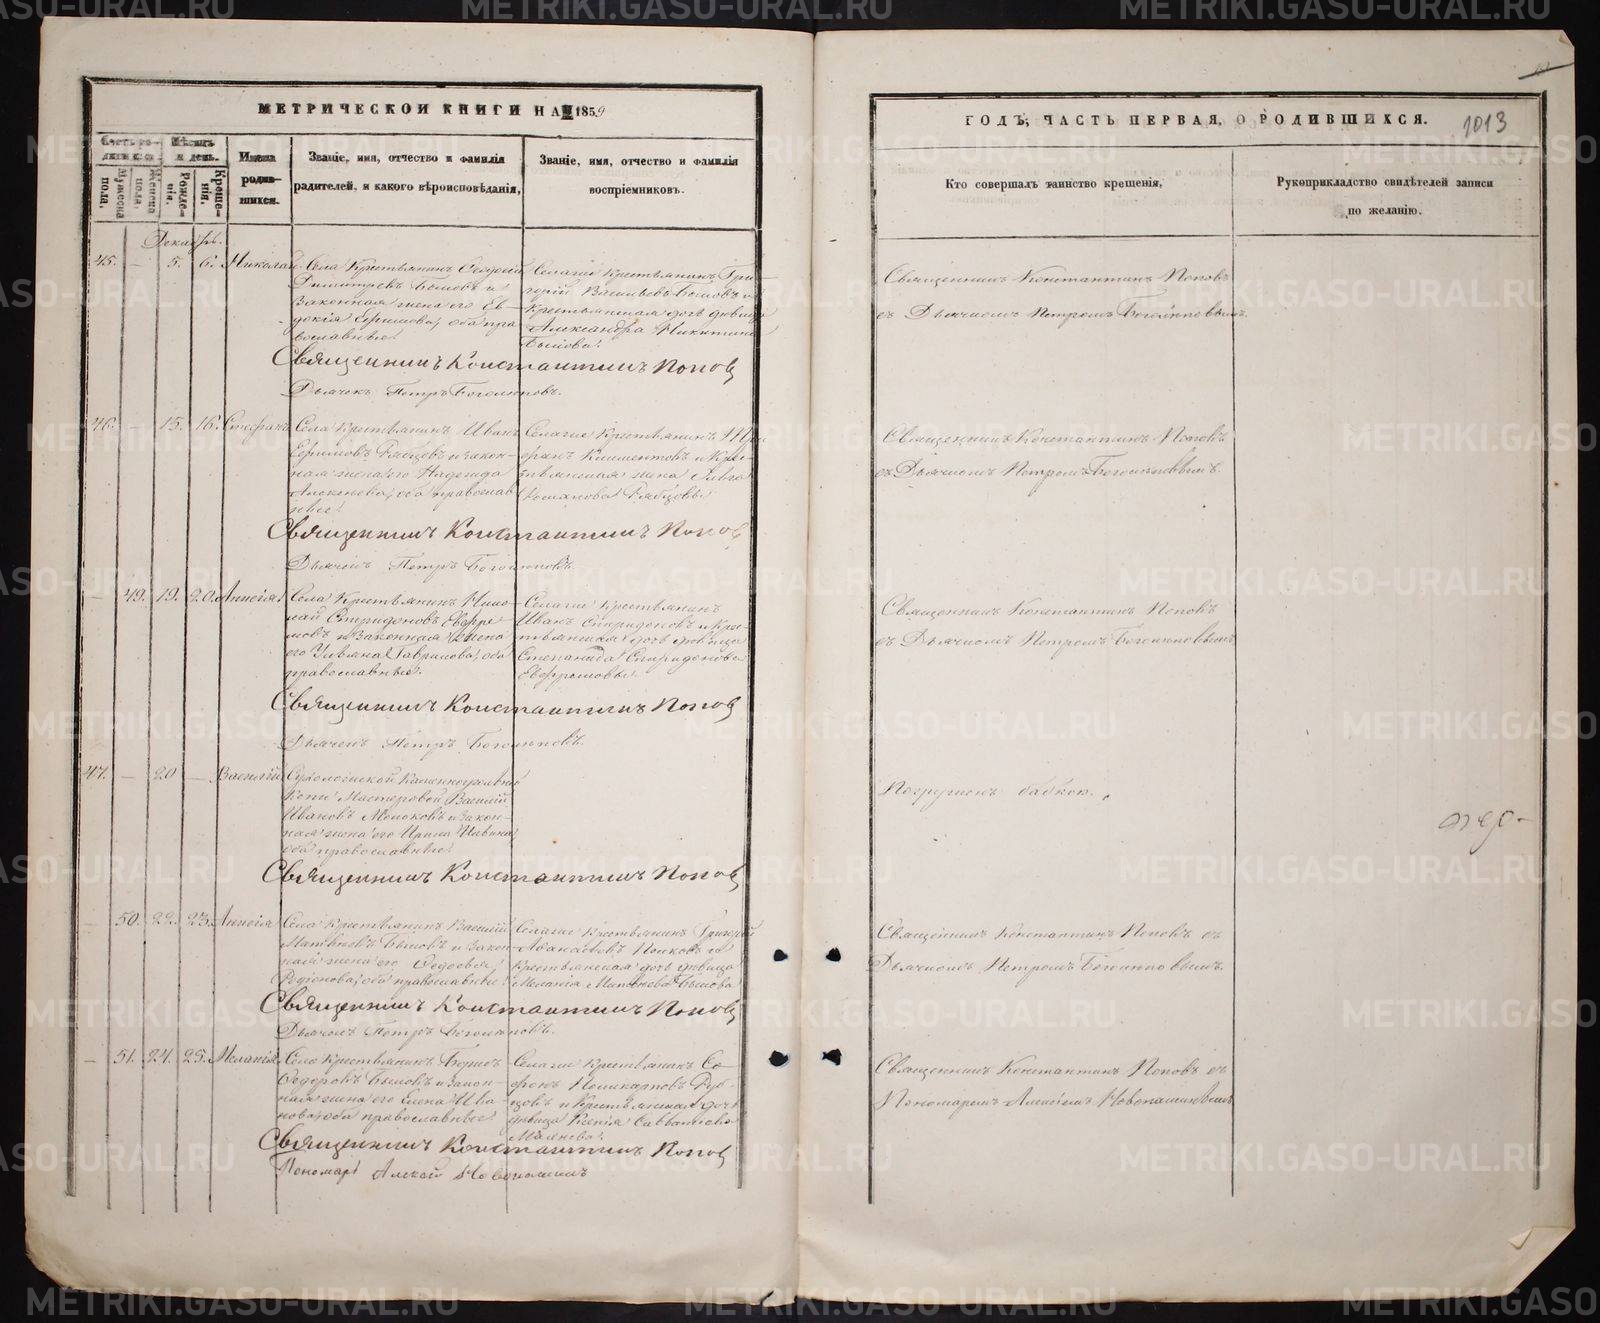 МЕТРИЧЕСКОЙ КНИГИ НА 1859
Счетъ родившихся
Мѣсяцъ и день.
Мужеска пола.
Женска пола.
Рожденія.
Крещенія.
Имена родившихся.
Званіе, имя, отчество и фамилія
родителей, и какого вѣроисповѣданія,
Званіе, имя, отчество и фамилія
воспріемниковъ.
Декабрь.
45. — 5. 6. Николай
Села Крестьянинъ Ѳеодосій
Димитріевъ Быковъ и
Законная жена его Ев-
докія Ефимова, оба пра
вославные.
Селагіе крестьянинъ Гри-
горій Васильевъ Быковъ и
Крестьянская дочь дѣвица
Александра Никитина
Быкова.
Священникъ Константинъ Поповъ
Дьячекъ Петръ Боголюповъ.
46. — 15. 16. Стефанъ
Села Крестьянинъ Иванъ
Ефимовъ Рябцовъ и закон-
ная жена его Надежда
Алексѣева, оба православ
ные.
Селагіе Крестьянинъ
Климентовъ и Кре-
стьянская жена
Романова Рябцовы.
Священникъ Константинъ Поповъ
Дьячекъ Петръ Боголюповъ.
— 49. 19. 20. Аннсія
Села Крестьянинъ Нико-
лай Спиридоновъ Евфре-
мовъ и Законная жена
его Ульяна Гаврилова, оба
православные.
Селагіе Крестьянинъ
Иванъ Спиридоновъ и Кре-
стьянская дочь дѣвица
Степанида Спиридонова
Евфремовы.
Священникъ Константинъ Поповъ
Дьячекъ Петръ Боголюповъ.
47. — 20 — Василій
Сухологской Каменноугольной
Копи Мастеровой Василій
Ивановъ Молоковъ и закон-
ная жена его Ирина
оба православные.
Священникъ Константинъ Поповъ
— 50. 22. 23. Аннсія
Села Крестьянинъ Василій
Матвѣевъ Быковъ и закон
ная жена его Ѳедосья
Родіонова, оба православные.
Селагіе Крестьянинъ Григорій
Аѳанасьевъ и
Крестьянская дочь дѣвица
Меланія Быкова
Священникъ Константинъ Поповъ
Дьячекъ Петръ Боголюповъ.
— 51. 24. 25. Меланія
Села Крестьянинъ Борисъ
Ѳедоровъ Быковъ и закон-
ная жена его Елена Ива-
нова, оба православные
Селагіе Крестьянинъ Со-
фронъ Поликарповъ Руб-
цовъ и Крестьянская дочь
дѣвица Ксенія
Священникъ Константинъ Поповъ
Пономарь Алексій Новопашинъ
ГОДЪ, ЧАСТЬ ПЕРВАЯ, О РОДИВШИХСЯ.
1013
Кто совершалъ таинство крещенія,
Рукоприкладство свидѣтелей записи
по желанію.
Священникъ Константинъ Поповъ
съ Дьячкомъ Петромъ Боголюповымъ.
Священникъ Константинъ Поповъ
съ Дьячкомъ Петромъ Боголюповымъ.
Священникъ Константинъ Поповъ
съ Дьячкомъ Петромъ Боголюповымъ
Погруженъ бабкою.
Священникъ Константинъ Поповъ съ
Дьячкомъ Петромъ Боголюповымъ.
Священникъ Константинъ Поповъ съ
Пономаремъ Алексіемъ Новопашинымъ
METRIKI.GASO-URAL.RU